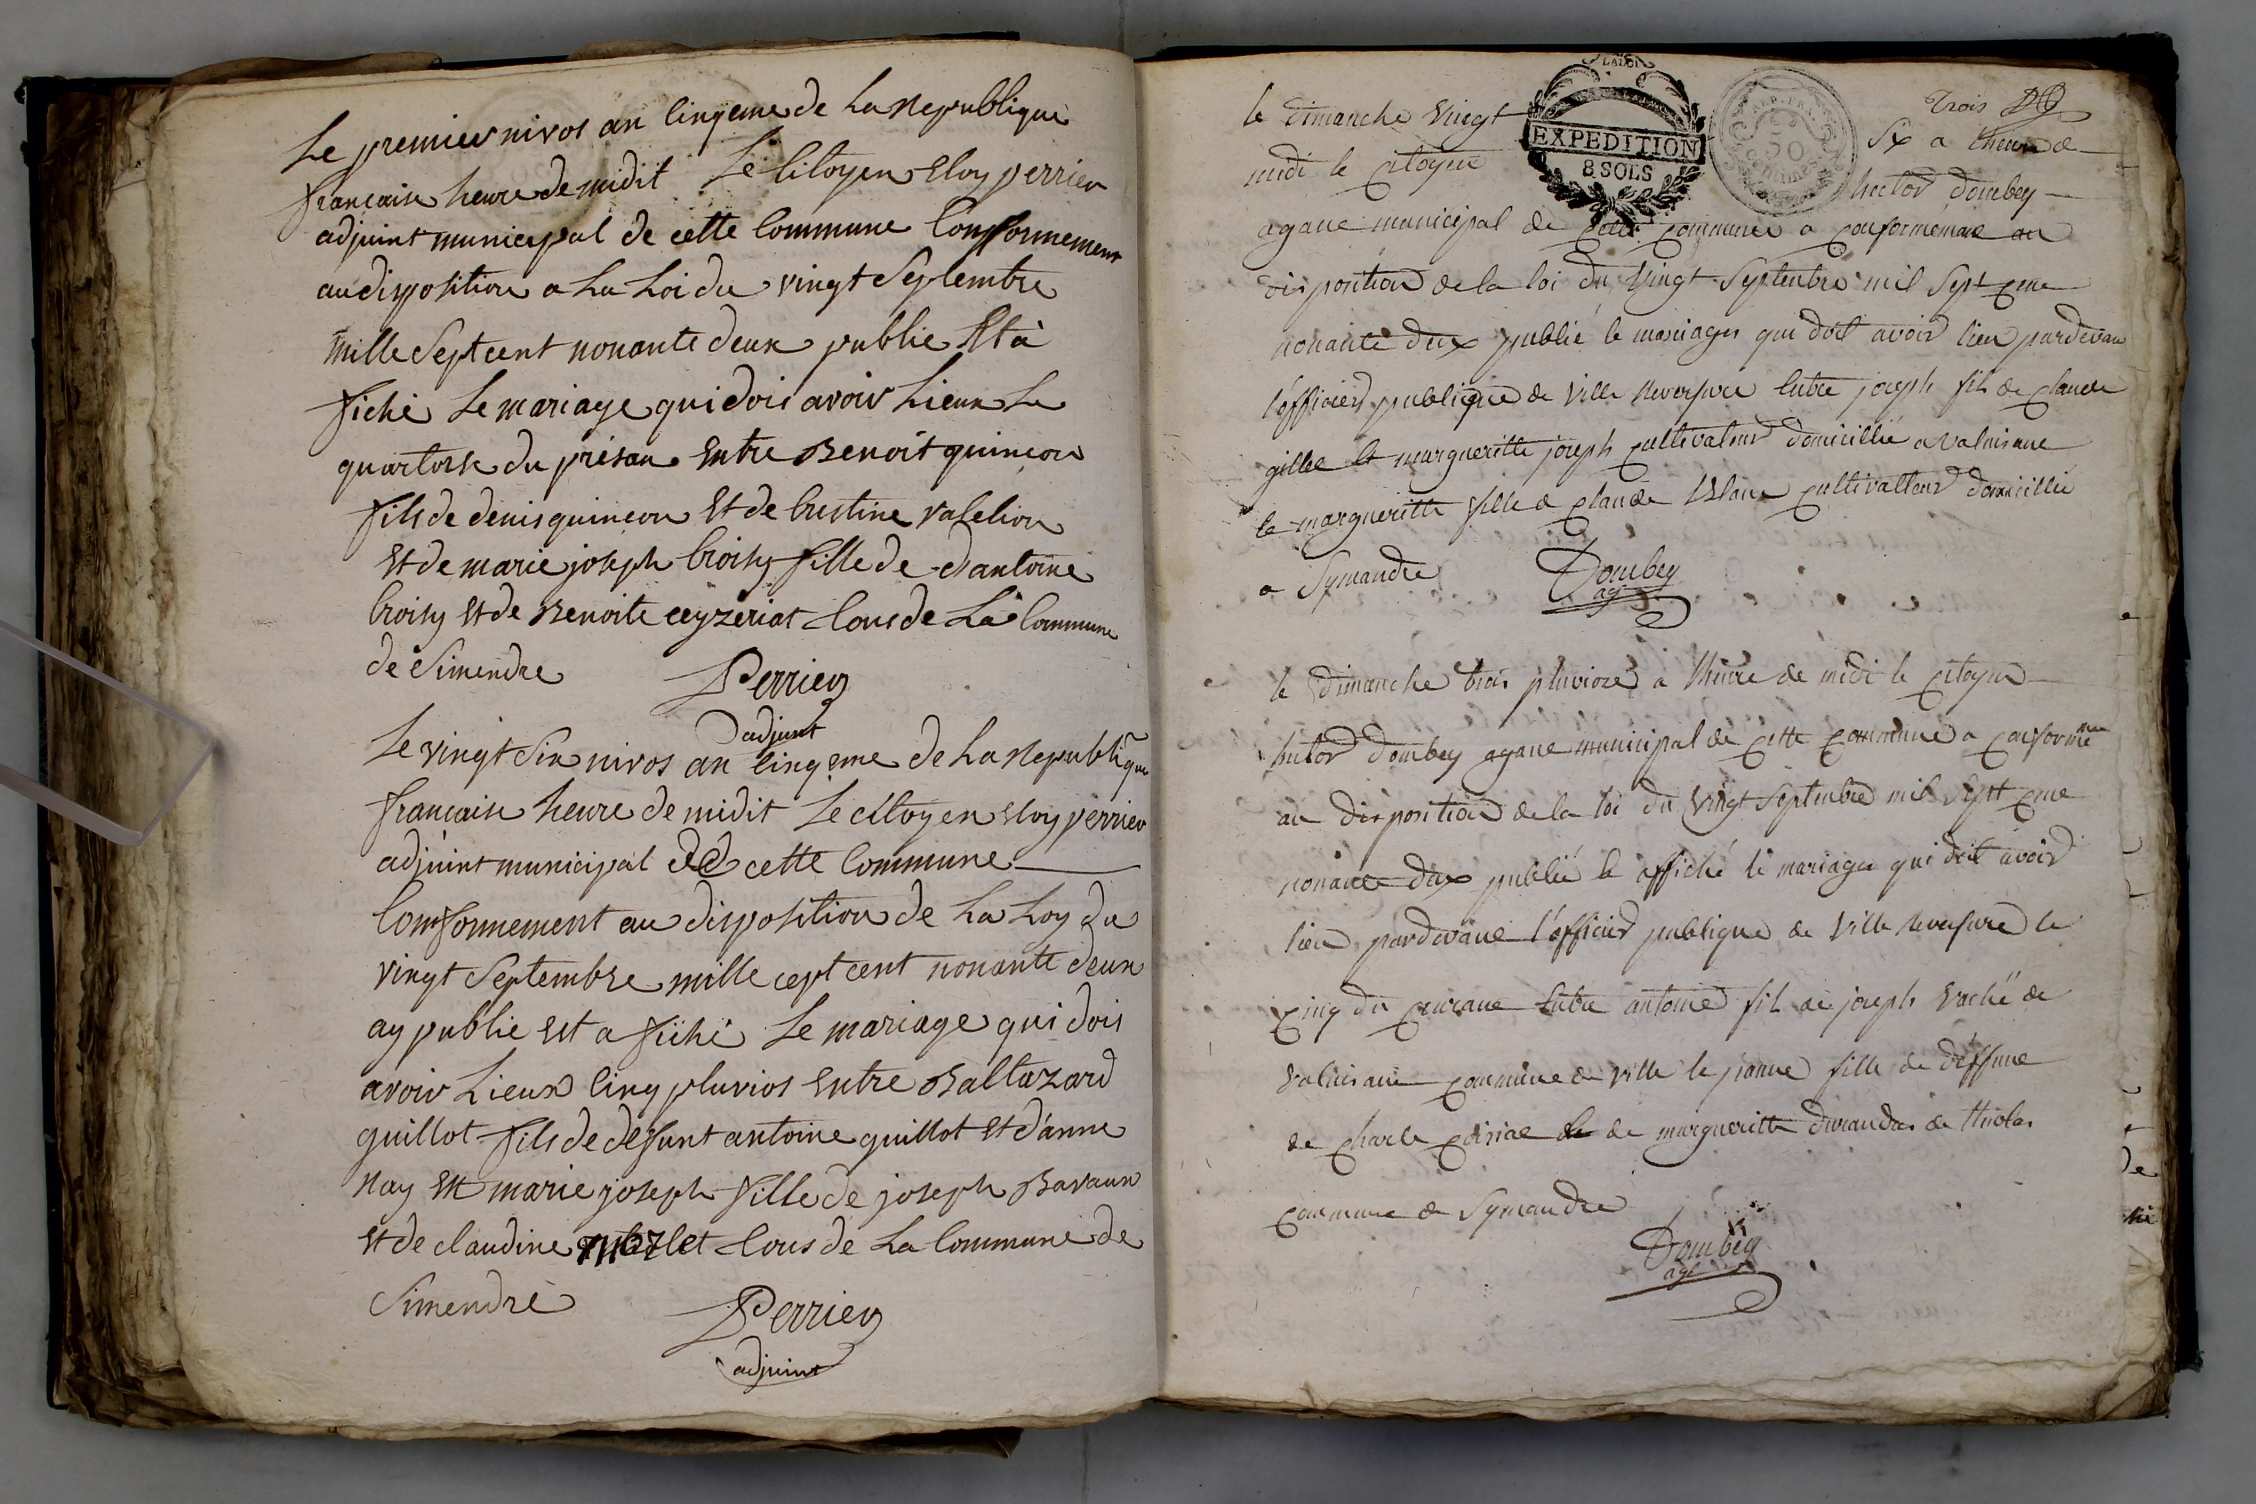 Le premier nivos an cinqeme de La Republique
francaise heure de midit Le Citoyen Eloy perrier
adjoint municipal de cette Commune Confformement
au disposition a La Loi du vingt Septembre
mille Sept cent nonante deux publie Et à
fiché Le mariage qui dois avoir Lieux Le
quartorse du présan Entre Benoit quincon
fils de denis quincon Et de Cristine valelion
Et de marie joseph Croisy fille de d'antoine
Croisy Et de Benoite ceyzeriat tous de La Commune
de Simendre
Perrier
adjunt
Le vingt Six nivos an cinqeme de La Republique
francaise heure de midit Le citoyen Eloy perrier
adjoint municipal de cette Commune
Comfformement au disposition de La Loy du
vingt Septembre mille cept cent nonante deux
ay publie Et a fiché Le mariage qui dois
avoir Lieux Cinq pluvios Entre Baltazard
guillot fils de defunt antoine guillot Et d'anne
Nay Et marie joseph fille de joseph Bavaux
Et de claudine morlet tous de La Commune de
Simendré
Perrier
adjoint
Trois
LA LOI
EXPEDITION
8 SOLS
50
CENTIMES
le dimanche Vingt Six a l'heure de
midi le Citoyen hector Dombey
agane municipal de cette Commune a Conformémant au
disposition de la loi du Vingt Septembre mil Sept Cent
nonante deux publié le mariage qui doit avoir lieu pardevan
l'officier publique de Ville Reversure Entre joseph fils de Claude
gillet et margueritte joseph Cultivateur domicillié a valuisant
le margueritte fille de Claude Blanc Cultivatteur domicillié
a Symandre
Dombey
agt
le Dimanche trois pluviose a l'heure de midi le Citoyen
hector Dombey agane municipal de Cette Commune a Conformémen
au disposition de la loi du Vingt Septembre mil Sept Cent
nonante deux publié le affiché le mariage qui doit avoir
lieu pardevant l'officier publique de Ville Reversure le
Cinq du Courant Entre antoine fils de joseph vaché de
Valuisant Commune de Ville le janne fille de deffunt
de Charle de margueritte durandas de
Commune de Symandre
Dombey
agt